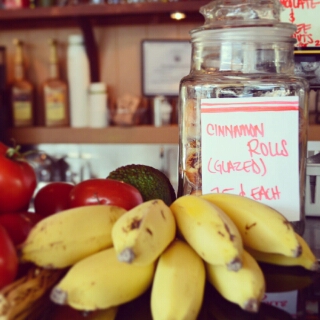 CINNAMON
ROLLS
(GLAZED)
75¢ EACH